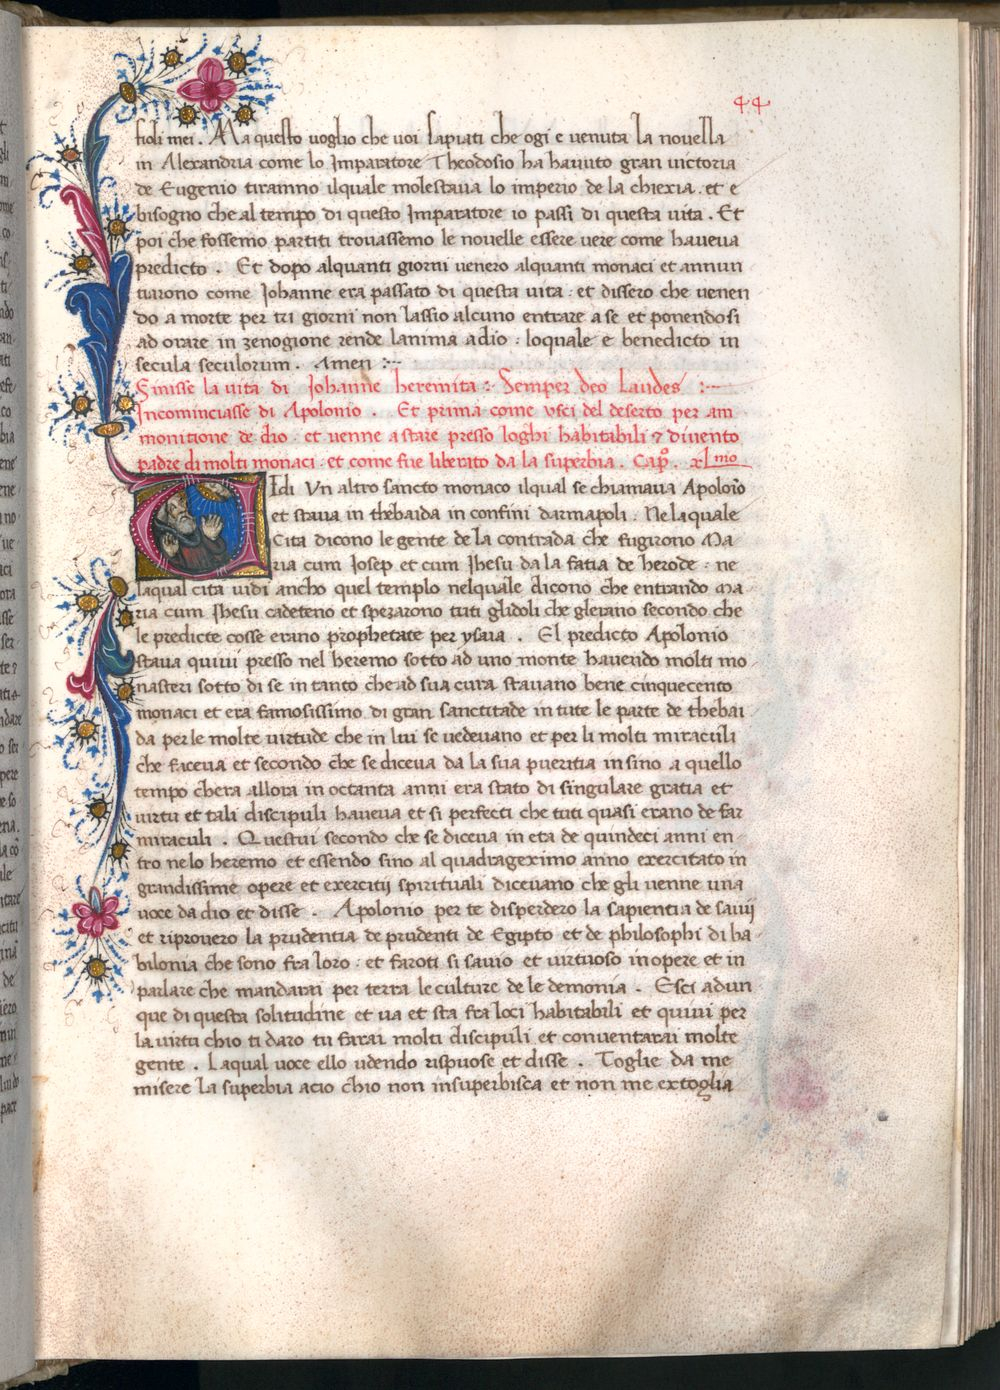 44
fioli mei . Ma questo uoglio che uoi sapiati che ogi e uenuta la nouella
in Alexandria come lo Imparatore Theodosio ha hauuto gran uictoria
de Eugenio tiramno ilquale molestaua lo imperio de la chiexia . et e
bisogno che al tempo di questo Imparatore io passi di questa uita . Et
poi che fossemo partiti trouassemo le nouelle essere uere come haueua
predicto . Et dopo alquanti giorni uenero alquanti monaci et annun
tiarono come Iohanne era passato di questa uita : et dissero che uenen
do a morte per tri giorni non lassio alcuno entrare a se et ponendosi
ad orare in zenogione rende lanima a dio : loquale e benedicto in
secula seculorum . Amen :~
Finisse la uita di Iohanne heremita : Semper deo laudes :~
Incominciasse di Apolonio . Et prima come vsci del deserto per am
monitione de dio . et uenne a stare presso loghi habitabili ⁊ diuento
padre di molti monaci . et come fue liberato da la superbia . Cap̊. xl mo
Idi Vn altro sancto monaco ilqual se chiamaua Apoloīo
et staua in thebaida in confini darmapoli . Ne la quale
Cita dicono le gente de la contrada che fugirono Ma
ria cum Iosep et cum Ihesu da la fatia de herode : ne
laqual cita uidi ancho quel templo nelquale dicono che entrando ma
ria cum Ihesu cadeteno et spezarono tuti glidoli che glerano secondo che
le predicte cosse erano prophetate per ysaia . El predicto Apolonio
staua quiui presso nel heremo sotto ad uno monte hauendo molti mo
nasteri sotto di se in tanto che ad sua cura stauano bene cinquecento
monaci et era famosissimo di gran sanctitade in tute le parte de thebai
da per le molte uirtude che in lui se uedeuano et per li molti miraculi
che faceua et secondo che se diceua da la sua pueritia in sino a quello
tempo chera allora in octanta anni era stato di singulare gratia et
uirtu et tali discipuli haueua et si perfecti che tuti quasi erano de far
miraculi . Questui secondo che se diceua in eta de quindeci anni en
tro ne lo heremo et essendo fino al quadrageximo anno exercitato in
grandissime opere et exercitij spirituali diceuano che gli uenne una
uoce da dio et disse . Apolonio per te disperdero la sapientia de sauij
et riprouero la prudentia de prudenti de Egipto et de philosophi di ba
bilonia che sono fra loro : et faroti si sauio et uirtuoso in opere et in
parlare che mandarai per terra le culture de le demonia . Esci adun
que di questa solitudine et ua et sta fra loci habitabili et quiui per
la uirtu chio ti daro tu farai molti discipuli et conuentarai molte
gente . Laqual uoce ello udendo rispuose et disse . Toglie da me
misere la superbia acio chio non insuperbisca et non me extoglia